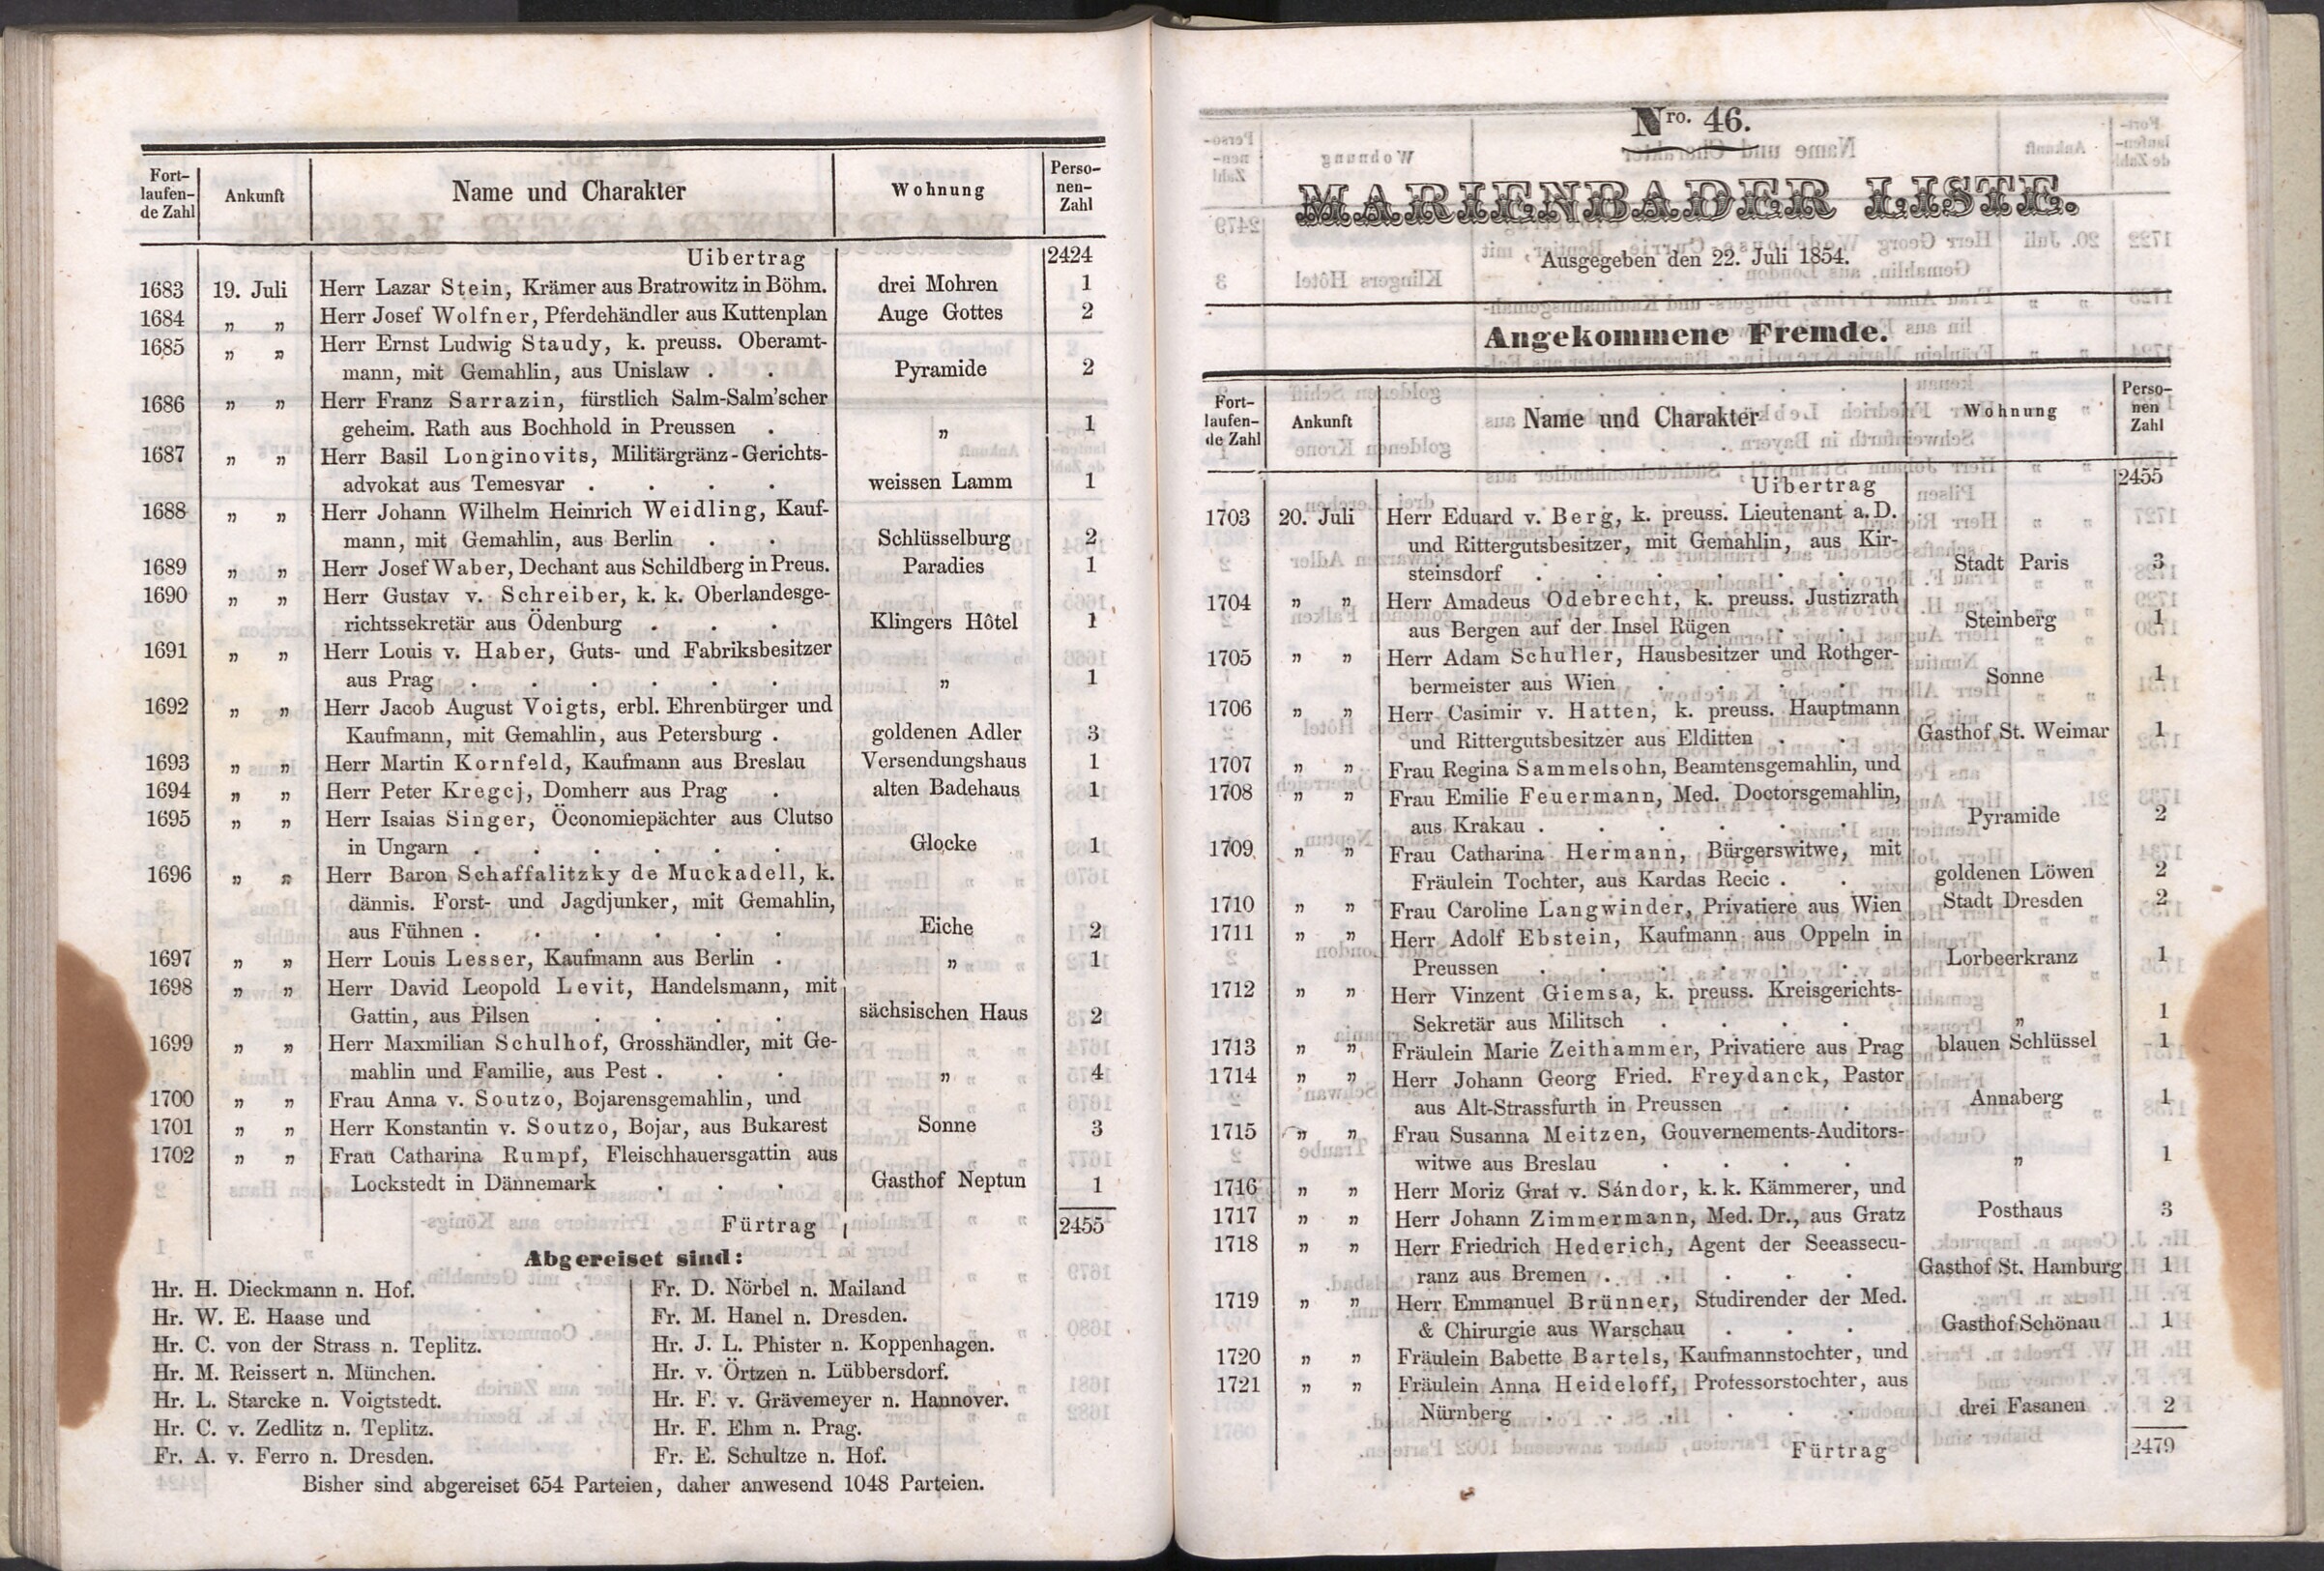 Fort-laufen-de Zahl | Ankunft | Name und Charakter | Wohnung | Perso-nen-Zahl
Uibertrag 2424
1683 19. Juli Herr Lazar Stein, Krämer aus Bratrowitz in Böhm. drei Mohren 1
1684 „ „ Herr Josef Wolfner, Pferdehändler aus Kuttenplan Auge Gottes 2
1685 „ „ Herr Ernst Ludwig Staudy, k. preuss. Oberamt-
mann, mit Gemahlin, aus Unislaw . . Pyramide 2
1686 „ „ Herr Franz Sarrazin, fürstlich Salm-Salm'scher
geheim. Rath aus Bochhold in Preussen . „ 1
1687 „ „ Herr Basil Longinovits, Militärgränz-Gerichts-
advokat aus Temesvar . . . . weissen Lamm 1
1688 „ „ Herr Johann Wilhelm Heinrich Weidling, Kauf-
mann, mit Gemahlin, aus Berlin . . Schlüsselburg 2
1689 „ „ Herr Josef Waber, Dechant aus Schildberg in Preus. Paradies 1
1690 „ „ Herr Gustav v. Schreiber, k. k. Oberlandesge-
richtssekretär aus Ödenburg . . . Klingers Hôtel 1
1691 „ „ Herr Louis v. Haber, Guts- und Fabriksbesitzer
aus Prag . . . . . . „ 1
1692 „ „ Herr Jacob August Voigts, erbl. Ehrenbürger und
Kaufmann, mit Gemahlin, aus Petersburg . goldenen Adler 3
1693 „ „ Herr Martin Kornfeld, Kaufmann aus Breslau Versendungshaus 1
1694 „ „ Herr Peter Kregcj, Domherr aus Prag . alten Badehaus 1
1695 „ „ Herr Isaias Singer, Öconomiepächter aus Clutso
in Ungarn . . . . . . Glocke 1
1696 „ „ Herr Baron Schaffalitzky de Muckadell, k.
dännis. Forst- und Jagdjunker, mit Gemahlin,
aus Fühnen . . . . . . Eiche 2
1697 „ „ Herr Louis Lesser, Kaufmann aus Berlin . „ 1
1698 „ „ Herr David Leopold Levit, Handelsmann, mit
Gattin, aus Pilsen . . . . sächsischen Haus 2
1699 „ „ Herr Maxmilian Schulhof, Grosshändler, mit Ge-
mahlin und Familie, aus Pest . . . „ 4
1700 „ „ Frau Anna v. Soutzo, Bojarensgemahlin, und
1701 „ „ Herr Konstantin v. Soutzo, Bojar, aus Bukarest Sonne 3
1702 „ „ Frau Catharina Rumpf, Fleischhauersgattin aus
Lockstedt in Dännemark . . . Gasthof Neptun 1
Fürtrag 2455
Abgereiset sind:
Hr. H. Dieckmann n. Hof.
Hr. W. E. Haase und
Hr. C. von der Strass n. Teplitz.
Hr. M. Reissert n. München.
Hr. L. Starcke n. Voigtstedt.
Hr. C. v. Zedlitz n. Teplitz.
Fr. A. v. Ferro n. Dresden.
Fr. D. Nörbel n. Mailand
Fr. M. Hanel n. Dresden.
Hr. J. L. Phister n. Koppenhagen.
Hr. v. Örtzen n. Lübbersdorf.
Hr. F. v. Grävemeyer n. Hannover.
Hr. F. Ehm n. Prag.
Fr. E. Schultze n. Hof.
Bisher sind abgereiset 654 Parteien, daher anwesend 1048 Parteien.
Nro. 46.
MARIENBADER LISTE.
Ausgegeben den 22. Juli 1854.
Angekommene Fremde.
Fort-laufen-de Zahl | Ankunft | Name und Charakter | Wohnung | Perso-nen Zahl
Uibertrag 2455
1703 20. Juli Herr Eduard v. Berg, k. preuss. Lieutenant a. D.
und Rittergutsbesitzer, mit Gemahlin, aus Kir-
steinsdorf . . . . . . Stadt Paris 3
1704 „ „ Herr Amadeus Odebrecht, k. preuss. Justizrath
aus Bergen auf der Insel Rügen . . Steinberg 1
1705 „ „ Herr Adam Schuller, Hausbesitzer und Rothger-
bermeister aus Wien . . . . Sonne 1
1706 „ „ Herr Casimir v. Hatten, k. preuss. Hauptmann
und Rittergutsbesitzer aus Elditten . . Gasthof St. Weimar 1
1707 „ „ Frau Regina Sammelsohn, Beamtensgemahlin, und
1708 „ „ Frau Emilie Feuermann, Med. Doctorsgemahlin,
aus Krakau . . . . . . Pyramide 2
1709 „ „ Frau Catharina Hermann, Bürgerswitwe, mit
Fräulein Tochter, aus Kardas Recic . . goldenen Löwen 2
1710 „ „ Frau Caroline Langwinder, Privatiere aus Wien Stadt Dresden 2
1711 „ „ Herr Adolf Ebstein, Kaufmann aus Oppeln in
Preussen . . . . . . Lorbeerkranz 1
1712 „ „ Herr Vinzent Giemsa, k. preuss. Kreisgerichts-
Sekretär aus Militsch . . . . „ 1
1713 „ „ Fräulein Marie Zeithammer, Privatiere aus Prag blauen Schlüssel 1
1714 „ „ Herr Johann Georg Fried. Freydanck, Pastor
aus Alt-Strassfurth in Preussen . . Annaberg 1
1715 „ „ Frau Susanna Meitzen, Gouvernements-Auditors-
witwe aus Breslau . . . . „ 1
1716 „ „ Herr Moriz Graf v. Sándor, k. k. Kämmerer, und
1717 „ „ Herr Johann Zimmermann, Med. Dr., aus Gratz Posthaus 3
1718 „ „ Herr Friedrich Hederich, Agent der Seeassecu-
ranz aus Bremen . . . . . Gasthof St. Hamburg 1
1719 „ „ Herr Emmanuel Brünner, Studirender der Med.
& Chirurgie aus Warschau . . . Gasthof Schönau 1
1720 „ „ Fräulein Babette Bartels, Kaufmannstochter, und
1721 „ „ Fräulein Anna Heideloff, Professorstochter, aus
Nürnberg . . . . . . drei Fasanen 2
Fürtrag 2479